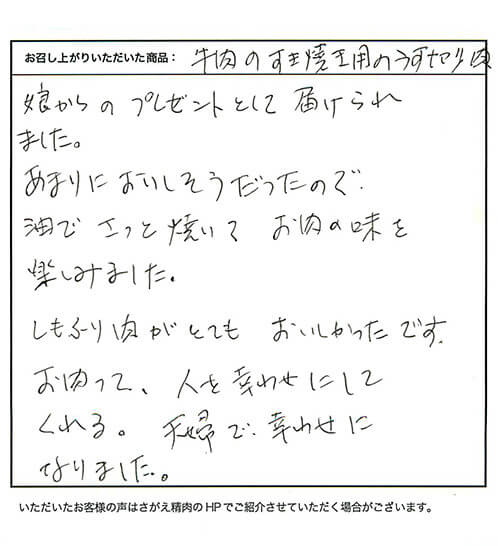 お召し上がりいただいた商品： 牛肉のすき焼き用のうす切り肉
娘からの プレゼントとして 届けられ
ました。
あまりに おいしそうだったので
油で さっと 焼いて お肉の味を
楽しみました。
しもふり肉が とても おいしかったです。
お肉って、人を 幸わせにして
くれる。 夫婦で 幸わせに
なりました。
いただいたお客様の声はさがえ精肉のHPでご紹介させていただく場合がございます。